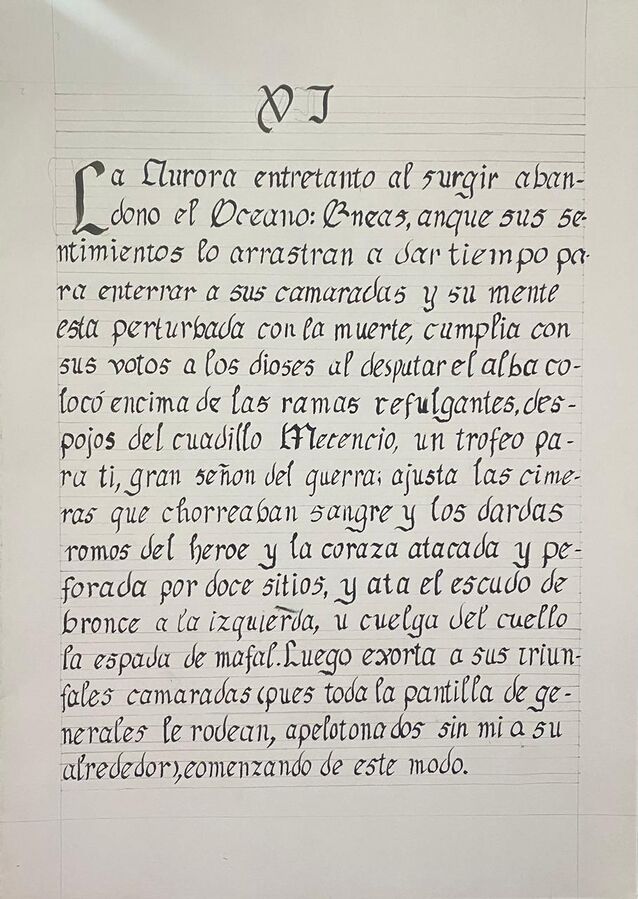 XI
La Aurora entretanto al surgir aban-
dono el Oceano: Eneas, anque sus se-
ntimientos lo arrastran a dar tiempo pa-
ra enterrar a sus camaradas y su mente
esta perturbada con la muerte, cumplia con
sus votos a los dioses al desputar el alba co-
locó encima de las ramas refulgantes, des-
pojos del cuadillo Mecencio, un trofeo pa-
ra ti, gran señon del guerra; ajusta las cime-
ras que chorreaban sangre y los dardas
romos del heroe y la coraza atacada y pe-
forada por doce sitios, y ata el escudo de
bronce a la izquierda, u cuelga del cuello
la espada de mafal. Luego exorta a sus triun-
fales camaradas (pues toda la pantilla de ge-
nerales le rodean, apelotonados sin mi a su
alrededor), comenzando de este modo.